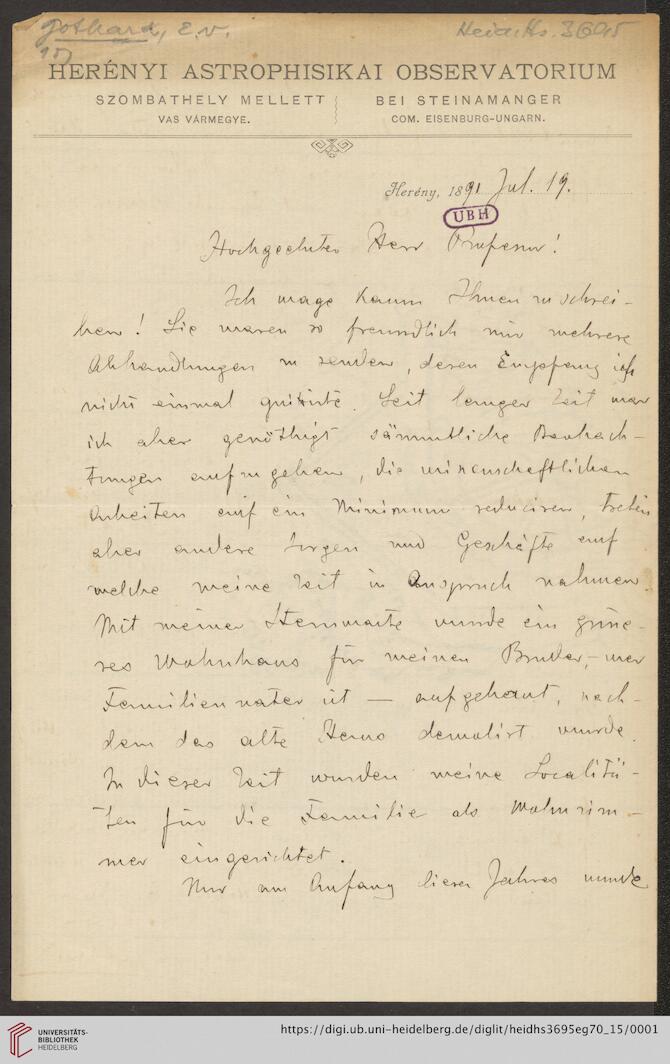 Gothard, E. v.
Heid. Hs. 3695
15)
HERÉNYI ASTROPHISIKAI OBSERVATORIUM
SZOMBATHELY MELLETT
BEI STEINAMANGER
VAS VÁRMEGYE.
COM. EISENBURG-UNGARN.
Herény, 1891 Jul. 19.
UBH
Hochgeehrter Herr Professor!
Ich wage kaum Ihnen zu schrei-
ben! Sie waren so freundlich mir mehrere
Abhandlungen zu senden, deren Empfang ich
nicht einmal quitirte. Seit langer Zeit war
ich aber genöthigt sämmtliche Beobach-
tungen aufzugeben, die wissenschaftlichen
Arbeiten auf ein Minimum reduciren, treten
aber andere Sorgen und Geschäfte auf
welche meine Zeit in Anspruch nahmen.
Mit meiner Sternwarte wurde ein
res Wohnhaus für meinen Bruder, – wer
Familienvater ist — aufgebaut, nach-
dem das alte Haus demolirt wurde.
In dieser Zeit wurden meine Localitä-
ten für die Familie als Wohnzim-
mer eingerichtet.
Nur am Anfang dieses Jahres wurde
UNIVERSITÄTS-
BIBLIOTHEK
HEIDELBERG
https://digi.ub.uni-heidelberg.de/diglit/heidhs3695eg70_15/0001